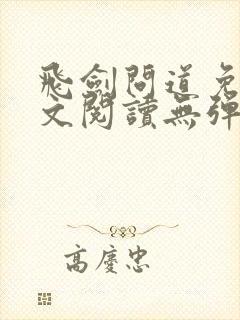 飛劍問道免
文閱讀無彈
高慶忠